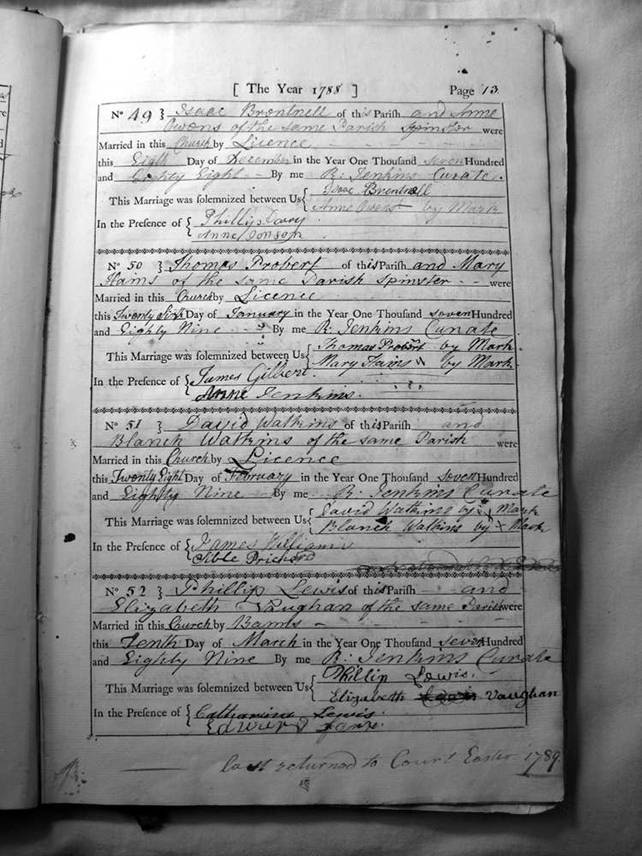 [ The Year 1788 ] Page 13
No 49 } Isaac Brentnell of this Parish and Anne
Owens of the same Parish Spinster were
Married in this Church by Licence
this Eigth Day of December in the Year One Thousand seven Hundred
and Eighty Eight By me R: Jenkins Curate.
This Marriage was solemnized between Us { Isaac Brentnell
Anne Owens by Mark
In the Presence of { Phillip
Anne
No 50 } Thomas Probert of this Parish and Mary
Hams of the same Parish Spinster were
Married in this Church by Licence
this Twenty Sixth Day of January in the Year One Thousand seven Hundred
and Eighty Nine By me R: Jenkins Curate
This Marriage was solemnized between Us { Thomas Probert by Mark
Mary Hams by Mark
In the Presence of { James Gilbert
Anne Jenkins.
No 51 } David Watkins of this Parish and
Blanch Watkins of the same Parish were
Married in this Church by Licence
this Twenty Eight Day of February in the Year One Thousand seven Hundred
and Eightly Nine By me R: Jenkins Curate
This Marriage was solemnized between Us { David Watkins by x Mark
Blanch Watkins by x Mark
In the Presence of { James Williams
Sible Prichard
No 52 } Phillip Lewis of this Parish and
Elizabeth Vaughan of the same Parish were
Married in this Church by Banns
this Tenth Day of March in the Year One Thousand seven Hundred
and Eighty Nine By me R: Jenkins Curate
This Marriage was solemnized between Us { Phillip Lewis.
Elizabeth Vaughan
In the Presence of { Catharine Lewis
Edward
last returned to Court Easter 1789.